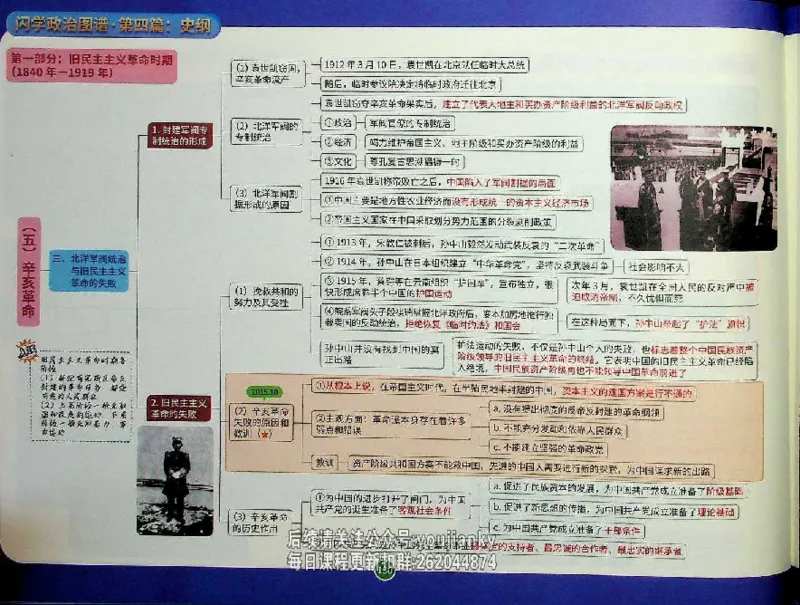 闪学政治图谱·第四篇：史纲
第一部分：旧民主主义革命时期
(1840年—1919年)
（五）辛亥革命
三、北洋军阀统治
与旧民主主义
革命的失败
1. 封建军阀专
制统治的形成
(1) 袁世凯窃国，
辛亥革命流产
1912年3月10日，袁世凯在北京就任临时大总统
随后，临时参议院决定将临时政府迁往北京
(2) 北洋军阀的
专制统治
袁世凯窃夺辛亥革命果实后，建立了代表大地主和买办资产阶级利益的北洋军阀反动政权
①政治
军阀官僚的专制统治
②经济
竭力维护帝国主义、地主阶级和买办资产阶级的利益
③文化
尊孔复古思潮猖獗一时
(3) 北洋军阀割
据形成的原因
1916年袁世凯称帝败亡之后，中国陷入了军阀割据的局面
①中国主要是地方性农业经济而没有形成统一的资本主义经济市场
②帝国主义国家在中国采取划分势力范围的分裂剥削政策
2. 旧民主主义
革命的失败
(1) 挽救共和的
努力及其受挫
①1913年，宋教仁被刺后，孙中山毅然发动武装反袁的“二次革命”
②1914年，孙中山在日本组织建立“中华革命党”，坚持反袁武装斗争
社会影响不大
③1915年，蔡锷等在云南组织“护国军”，宣布独立，很
快形成席卷半个中国的护国运动
次年3月，袁世凯在全国人民的反对声中被
迫取消帝制，不久忧惧而死
④皖系军阀头子段祺瑞掌握北洋政府后，变本加厉地推行独
裁卖国的反动统治，拒绝恢复《临时约法》和国会
在这种局面下，孙中山举起了“护法”旗帜
孙中山并没有找到中国的真
正出路
护法运动的失败，不仅是孙中山个人的失败，也标志着整个中国民族资产
阶级领导的旧民主主义革命的终结，它表明中国的旧民主主义革命已经陷
入绝境，中国民族资产阶级再也不能领导中国革命前进了
2015.10
(2) 辛亥革命
失败的原因和
教训（★）
①从根本上说，在帝国主义时代，在半殖民地半封建的中国，资本主义的建国方案是行不通的
②主观方面：革命派本身存在着许多
弱点和错误
a. 没有提出彻底的反帝反封建的革命纲领
b. 不能充分发动和依靠人民群众
c. 不能建立坚强的革命政党
教训
资产阶级共和国方案不能救中国，先进的中国人需要进行新的探索，为中国谋求新的出路
(3) 辛亥革命
的历史作用
①为中国的进步打开了闸门，为中国
共产党的诞生准备了客观社会条件
a. 促进了民族资本的发展，为中国共产党成立准备了阶级基础
b. 促进了新思想的传播，为中国共产党成立准备了理论基础
c. 为中国共产党成立准备了干部条件
支持者、最忠诚的合作者、最忠实的继承者
后续请关注公众号:youjiankv
每日课程更新扣群:262044874